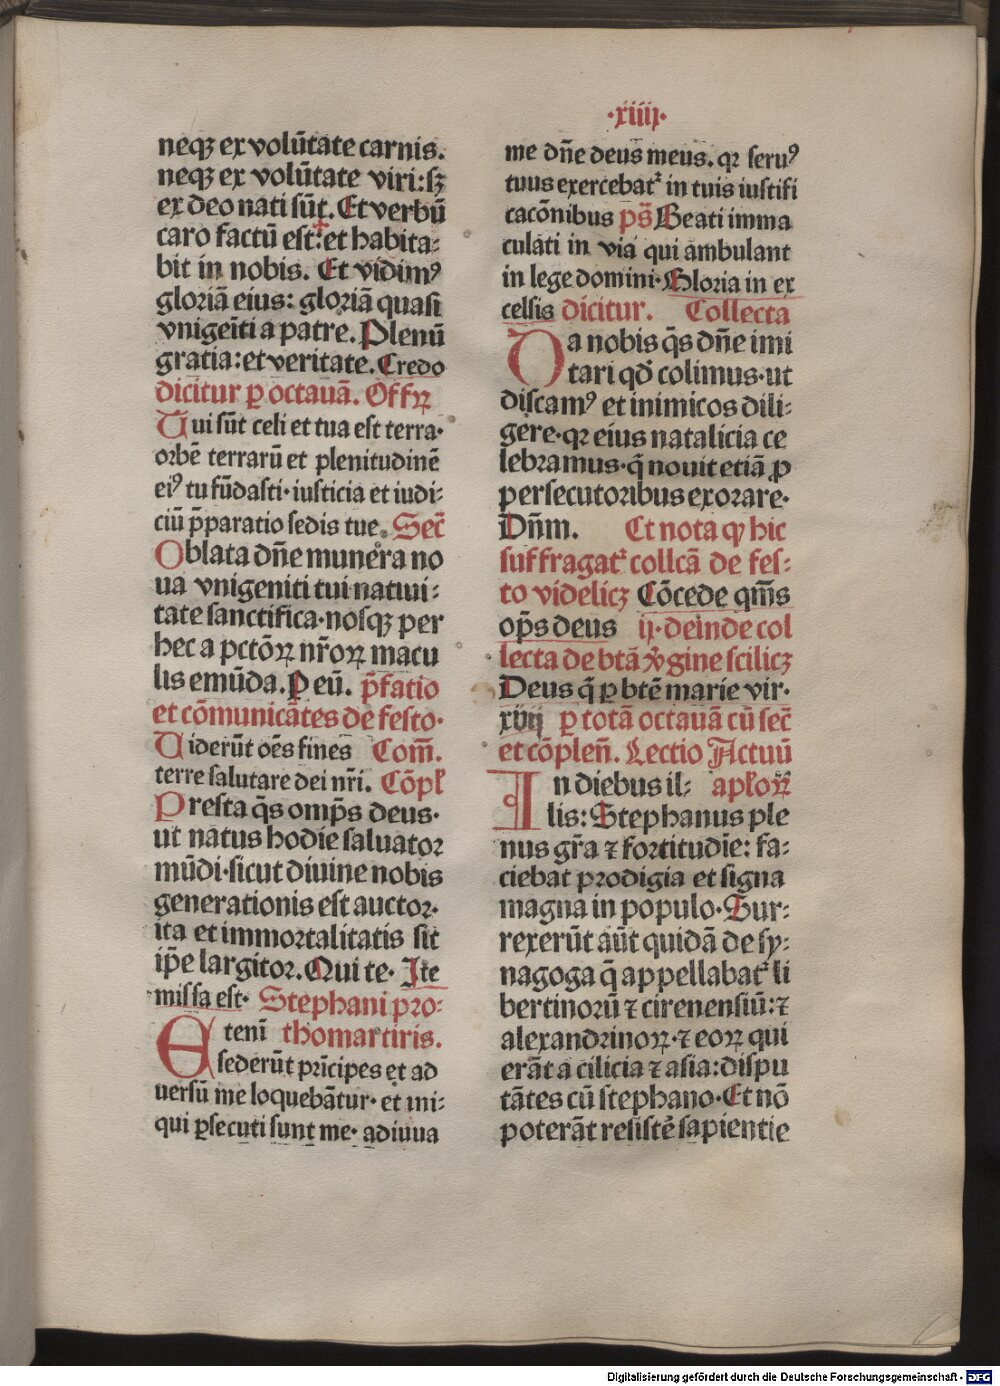 ·xiiij·
neqꝫ ex volūtate carnis.
neqꝫ ex volūtate viri: sꝫ
ex deo nati sūt. Et verbū
caro factū est: et habita⸗
bit in nobis. Et vidimꝰ
gloriā eius: gloriā quasi
vnigeīti a patre. Plenū
gratia: et veritate. Credo
dicitur ꝑ octauā. Offꝝ
Tui sūt celi et tua est terra·
orbē terrarū et plenitudinē
eiꝰ tu fūdasti· iusticia et iudi⸗
ciū p̄paratio sedis tue. Sec̄
Oblata dn̄e munera no
ua vnigeniti tui natiui⸗
tate sanctifica· nosqꝫ per
hec a pctōꝝ nr̄oꝝ macu
lis emūda. P eū. p̄fatio
et cōmunicātes de festo·
Viderūt oēs fines Com̄.
terre salutare dei nr̄i. Cōpł
Presta q̄s omp̄s deus·
ut natus hodie saluator
mūdi· sicut diuine nobis
generationis est auctor·
ita et immortalitatis sit
ip̄e largitor. Qui te· Ite
missa est· Stephani pro⸗
Etenī thomartiris.
sederūt prīcipes et ad
uersū me loquebātur· et ini⸗
qui ꝑsecuti sunt me· adiuua
me dn̄e deus meus. qꝛ seruꝰ
tuus exercebat᷑ in tuis iustifi
cacōnibus ps̄ Beati imma
culati in via qui ambulant
in lege domini· Gloria in ex
celsis dicitur. Collecta
Da nobis q̄s dn̄e imi
tari qd̄ colimus· ut
discamꝰ et inimicos dili⸗
gere· qꝛ eius natalicia ce
lebramus· q̄ nouit etiā ꝓ
persecutoribus exorare·
Dn̄m. Et nota ꝙ hic
suffragat᷑ collcā de fes⸗
to videlicꝫ Cōcede qm̄s
op̄s deus ij· deinde col
lecta de btā v̾gine scilicꝫ
Deus q̄ ꝑ btē marie vir·
xviij ꝑ totā octauā cū sec̄
et cōplen̄. Lectio Actuū
In diebus il⸗ apłoꝝ
lis: Stephanus ple
nus gr̄a ⁊ fortitudīe: fa⸗
ciebat prodigia et signa
magna in populo· Sur⸗
rexerūt aūt quidā de sy⸗
nagoga q̄ appellabat᷑ li
bertinorū ⁊ cirenensiū: ⁊
alexandrinoꝝ· ⁊ eoꝝ qui
erāt a cilicia ⁊ asia: dispu
tātes cū stephano· Et nō
poterāt resistē sapientie
Digitalisierung gefördert durch die Deutsche Forschungsgemeinschaft - DFG